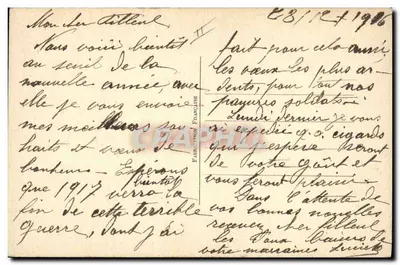 28/12/1916
Mon cher filleul
Nous voici bientôt
au seuil de la
nouvelle année, avec
elle je vous envoie
mes meilleurs sou
haits et vœux de
bonheur. Espérons
que 1917 bientôt verra la
fin de cette terrible
guerre, dont j'ai
II
FABRICATION FRANÇAISE
fait pour cela aussi
les vœux les plus ar
dents, pour tout nos
pauvres soldats.
Lundi dernier je vous
ai expédié q.q. cigares
qui j'espère seront
de votre goût et
vous feront plaisir.
Dans l'attente de
vos bonnes nouvelles
recevez cher filleul
les doux baisers de
votre marraine Lucie